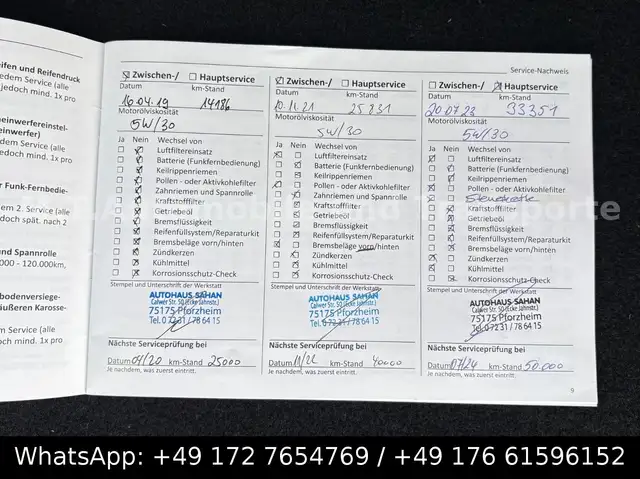 eifen und Reifendruck
edem Service (alle
jedoch mind. 1x pro
heinwerfereinstel-
nwerfer)
edem Service (alle
jedoch mind. 1x pro
r Funk-Fernbedie-
m 2. Service (alle
doch spät. nach 2
und Spannrolle
000 - 120.000km,
bodenversiege-
äußeren Karosse-
r Service (alle
doch mind. 1x pro
Service-Nachweis
Zwischen-/ Hauptservice
Datum km-Stand
16.04.19 14186
Motorölviskosität
5W/30
Ja Nein Wechsel von
Luftfiltereinsatz
Batterie (Funkfernbedienung)
Keilrippenriemen
Pollen - oder Aktivkohlefilter
Zahnriemen und Spannrolle
Kraftstofffilter
Getriebeöl
Bremsflüssigkeit
Reifenfüllsystem/Reparaturkit
Bremsbeläge vorn/hinten
Zündkerzen
Kühlmittel
Korrosionsschutz-Check
Stempel und Unterschrift der Werkstatt
AUTOHAUS SAHAN
Calwer Str. 50 (Ecke Jahnstr.)
75175 Pforzheim
Tel. 0 72 31 / 78 64 15
Nächste Serviceprüfung bei
Datum 04/20 km-Stand 25000
Je nachdem, was zuerst eintritt.
Zwischen-/ Hauptservice
Datum km-Stand
10.11.21 25831
Motorölviskosität
5W/30
Ja Nein Wechsel von
Luftfiltereinsatz
Batterie (Funkfernbedienung)
Keilrippenriemen
Pollen - oder Aktivkohlefilter
Zahnriemen und Spannrolle
Kraftstofffilter
Getriebeöl
Bremsflüssigkeit
Reifenfüllsystem/Reparaturkit
Bremsbeläge vorn/hinten
Zündkerzen
Kühlmittel
Korrosionsschutz-Check
Stempel und Unterschrift der Werkstatt
AUTOHAUS SAHAN
Calwer Str. 50 (Ecke Jahnstr.)
75175 Pforzheim
Tel. 0 72 31 / 78 64 15
Nächste Serviceprüfung bei
Datum 11/22 km-Stand 40000
Je nachdem, was zuerst eintritt.
Zwischen-/ Hauptservice
Datum km-Stand
20.07.23 33351
Motorölviskosität
5W/30
Ja Nein Wechsel von
Luftfiltereinsatz
Batterie (Funkfernbedienung)
Keilrippenriemen
Pollen - oder Aktivkohlefilter
Kraftstofffilter
Getriebeöl
Bremsflüssigkeit
Reifenfüllsystem/Reparaturkit
Bremsbeläge vorn/hinten
Zündkerzen
Kühlmittel
Korrosionsschutz-Check
Stempel und Unterschrift der Werkstatt
AUTOHAUS SAHAN
Calwer Str. 50 (Ecke Jahnstr.)
75175 Pforzheim
Tel. 0 72 31 / 78 64 15
Nächste Serviceprüfung bei
Datum 07/24 km-Stand 50.000
Je nachdem, was zuerst eintritt.
9
WhatsApp: +49 172 7654769 / +49 176 61596152